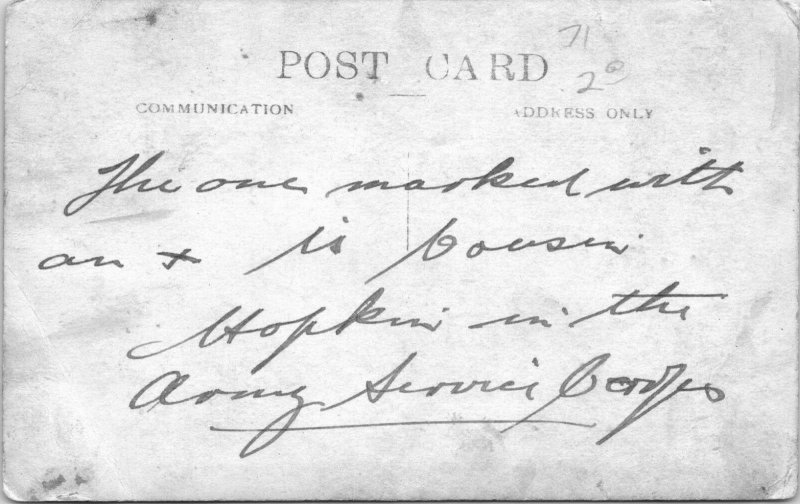 71
20
POST CARD
COMMUNICATION
ADDRESS ONLY
The one marked with
an x is Cousin
Hopkin in the
Army Service Corps